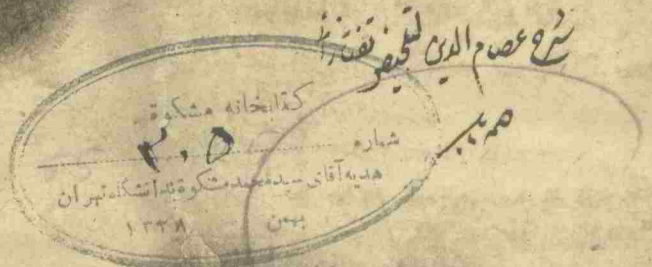 شرح عصام الدین لتلخیص تفتازا
کتابخانه مشکوة
شماره ۳۰۵
هدیه آقای سید محمد مشکوة بدانشگاه تهران
بهمن ۱۳۳۸